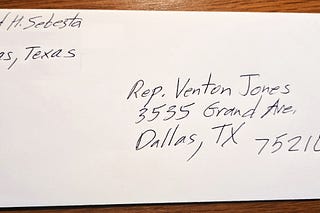 H. Sebesta
as, Texas
Rep. Venton Jones
3535 Grand Ave.
Dallas, TX 75210